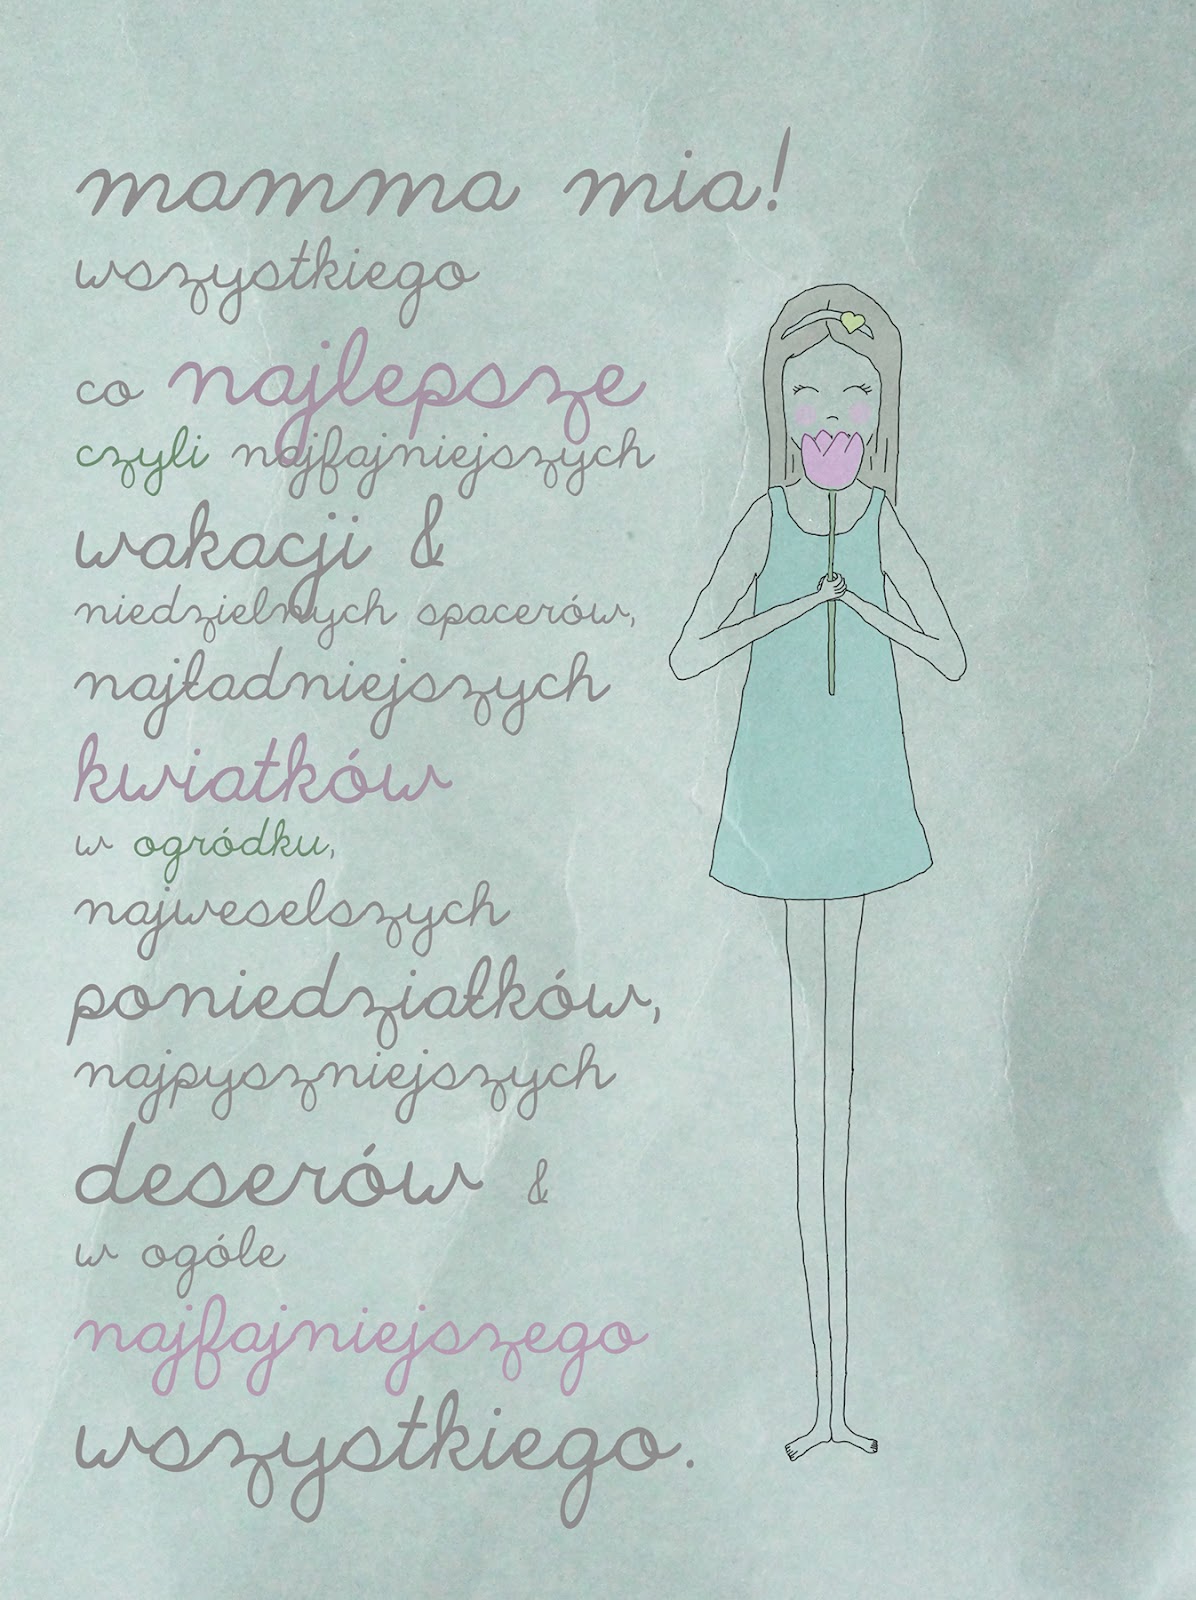 mamma mia!
wszystkiego
co najlepsze
czyli najfajniejszych
wakacji &
niedzielnych spacerów,
najładniejszych
kwiatków
w ogródku,
najweselszych
poniedziałków,
najpyszniejszych
deserów &
w ogóle
najfajniejszego
wszystkiego.